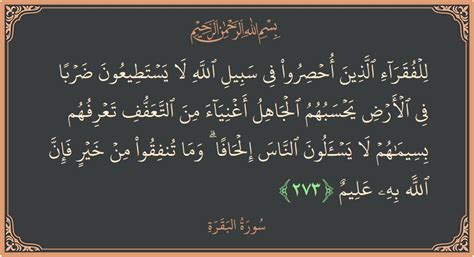 بِسْمِ اللَّهِ الرَّحْمَٰنِ الرَّحِيمِ
لِلْفُقَرَاءِ الَّذِينَ أُحْصِرُوا فِي سَبِيلِ اللَّهِ لَا يَسْتَطِيعُونَ ضَرْبًا
فِي الْأَرْضِ يَحْسَبُهُمُ الْجَاهِلُ أَغْنِيَاءَ مِنَ التَّعَفُّفِ تَعْرِفُهُم
بِسِيمَاهُمْ لَا يَسْـَٔلُونَ النَّاسَ إِلْحَافًا ۗ وَمَا تُنفِقُوا مِنْ خَيْرٍ فَإِنَّ
اللَّهَ بِهِ عَلِيمٌ ﴿٢٧٣﴾
سُورَةُ الْبَقَرَةِ